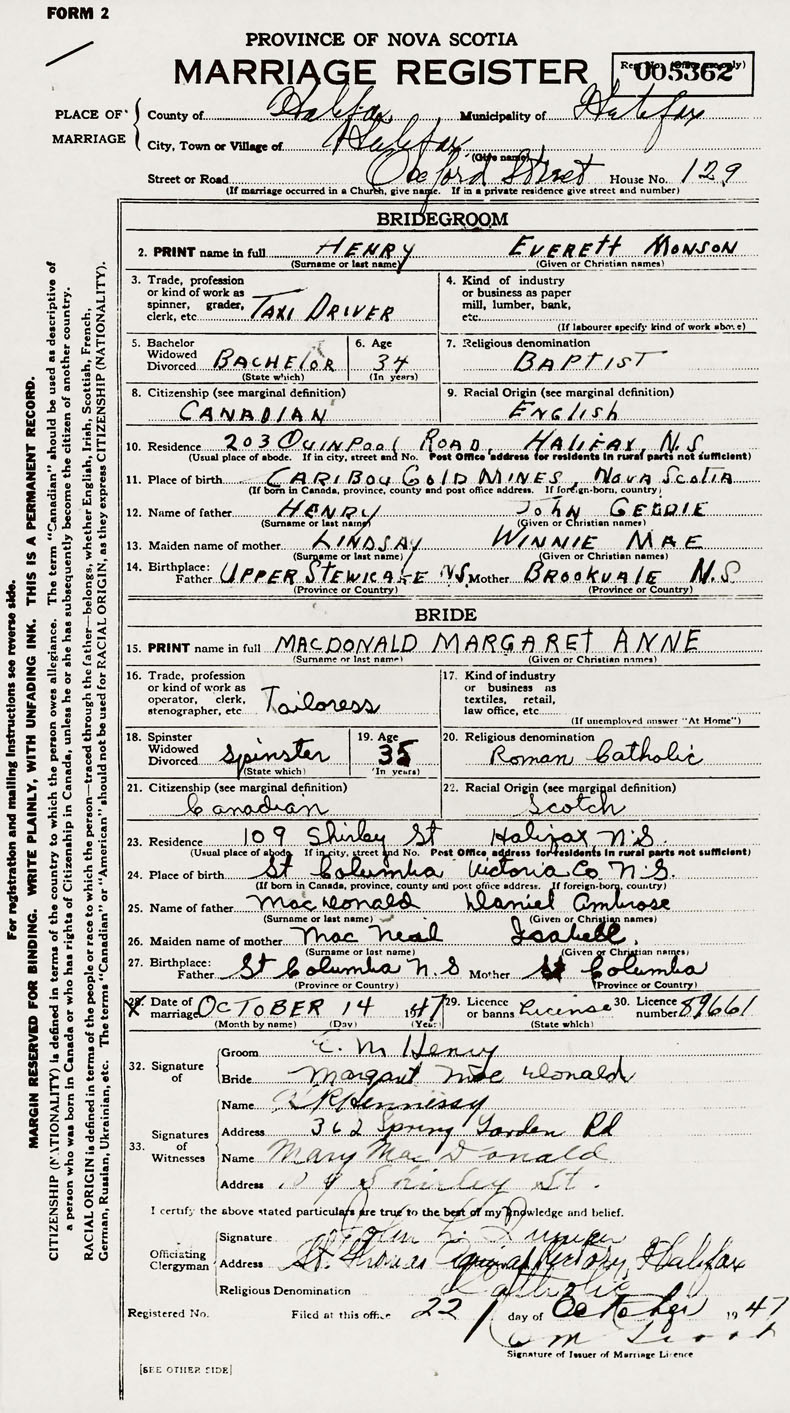 FORM 2
PROVINCE OF NOVA SCOTIA
MARRIAGE REGISTER
005362
PLACE OF MARRIAGE
County of Halifax Municipality of Halifax
City, Town or Village of Halifax
(Give name)
Street or Road Oxford Street House No. 129
(If marriage occurred in a Church, give name. If in a private residence give street and number)
BRIDEGROOM
2. PRINT name in full HENRY EVERETT MONSON
(Surname or last name) (Given or Christian names)
3. Trade, profession or kind of work as spinner, grader, clerk, etc. TAXI DRIVER
4. Kind of industry or business as paper mill, lumber, bank, etc.
(If labourer specify kind of work above)
5. Bachelor Widowed Divorced BACHELOR
(State which)
6. Age 34
(In years)
7. Religious denomination BAPTIST
8. Citizenship (see marginal definition) CANADIAN
9. Racial Origin (see marginal definition) ENGLISH
10. Residence 203 QUINPOOL ROAD, HALIFAX, N.S
(Usual place of abode. If in city, street and No. Post Office address for residents in rural parts not sufficient)
11. Place of birth CARIBOU GOLD MINES, NOVA SCOTIA
(If born in Canada, province, county and post office address. If foreign-born, country)
12. Name of father HENRY JOHN
(Surname or last name) (Given or Christian names)
13. Maiden name of mother LINDSAY WINNIE MAE
(Surname or last name) (Given or Christian names)
14. Birthplace: Father UPPER STEWICAKE N.S. Mother BROOKVALE N.S
(Province or Country) (Province or Country)
BRIDE
15. PRINT name in full MACDONALD MARGARET ANNE
(Surname or last name) (Given or Christian names)
16. Trade, profession or kind of work as operator, clerk, stenographer, etc. Tailoress
17. Kind of industry or business as textiles, retail, law office, etc.
(If unemployed answer "At Home")
18. Spinster Widowed Divorced Spinster
(State which)
19. Age 35
(In years)
20. Religious denomination Roman Catholic
21. Citizenship (see marginal definition) Canadian
22. Racial Origin (see marginal definition) Scotch
23. Residence 109 Shirley St Halifax N.S.
(Usual place of abode. If in city, street and No. Post Office address for residents in rural parts not sufficient)
24. Place of birth St Columba Victoria Co N.S.
(If born in Canada, province, county and post office address. If foreign-born, country)
25. Name of father MacDonald Daniel Ambrose
(Surname or last name) (Given or Christian names)
26. Maiden name of mother Mac Neil Isabell.
(Surname or last name) (Given or Christian names)
27. Birthplace: Father St Columba N.S Mother St Columba
(Province or Country) (Province or Country)
28. Date of marriage OCTOBER 14 1947
(Month by name) (Day) (Year)
29. Licence or banns License
(State which)
30. Licence number 89661
32. Signature of
Groom E. M Henry
Bride Margaret MacDonald
33. Signatures of Witnesses
Name Hennessy
Address 362 Spring Garden Rd
Name Mary MacDonald
Address Shirley St.
I certify the above stated particulars are true to the best of my knowledge and belief.
Officiating Clergyman
Signature John
Address St. Thomas Aquinas Rectory, Halifax
Religious Denomination Catholic
Registered No. Filed at this office 22 day of October 1947
Signature of Issuer of Marriage Licence
[SEE OTHER SIDE]
For registration and mailing instructions see reverse side.
MARGIN RESERVED FOR BINDING. WRITE PLAINLY, WITH UNFADING INK. THIS IS A PERMANENT RECORD.
CITIZENSHIP (NATIONALITY) is defined in terms of the country to which the person owes allegiance. The term "Canadian" should be used as descriptive of
a person who was born in Canada or who has rights of Citizenship in Canada, unless he or she has subsequently become the citizen of another country.
RACIAL ORIGIN is defined in terms of the people or race to which the person—traced through the father—belongs, whether English, Irish, Scottish, French,
German, Russian, Ukrainian, etc. The terms "Canadian" or "American" should not be used for RACIAL ORIGIN, as they express CITIZENSHIP (NATIONALITY).